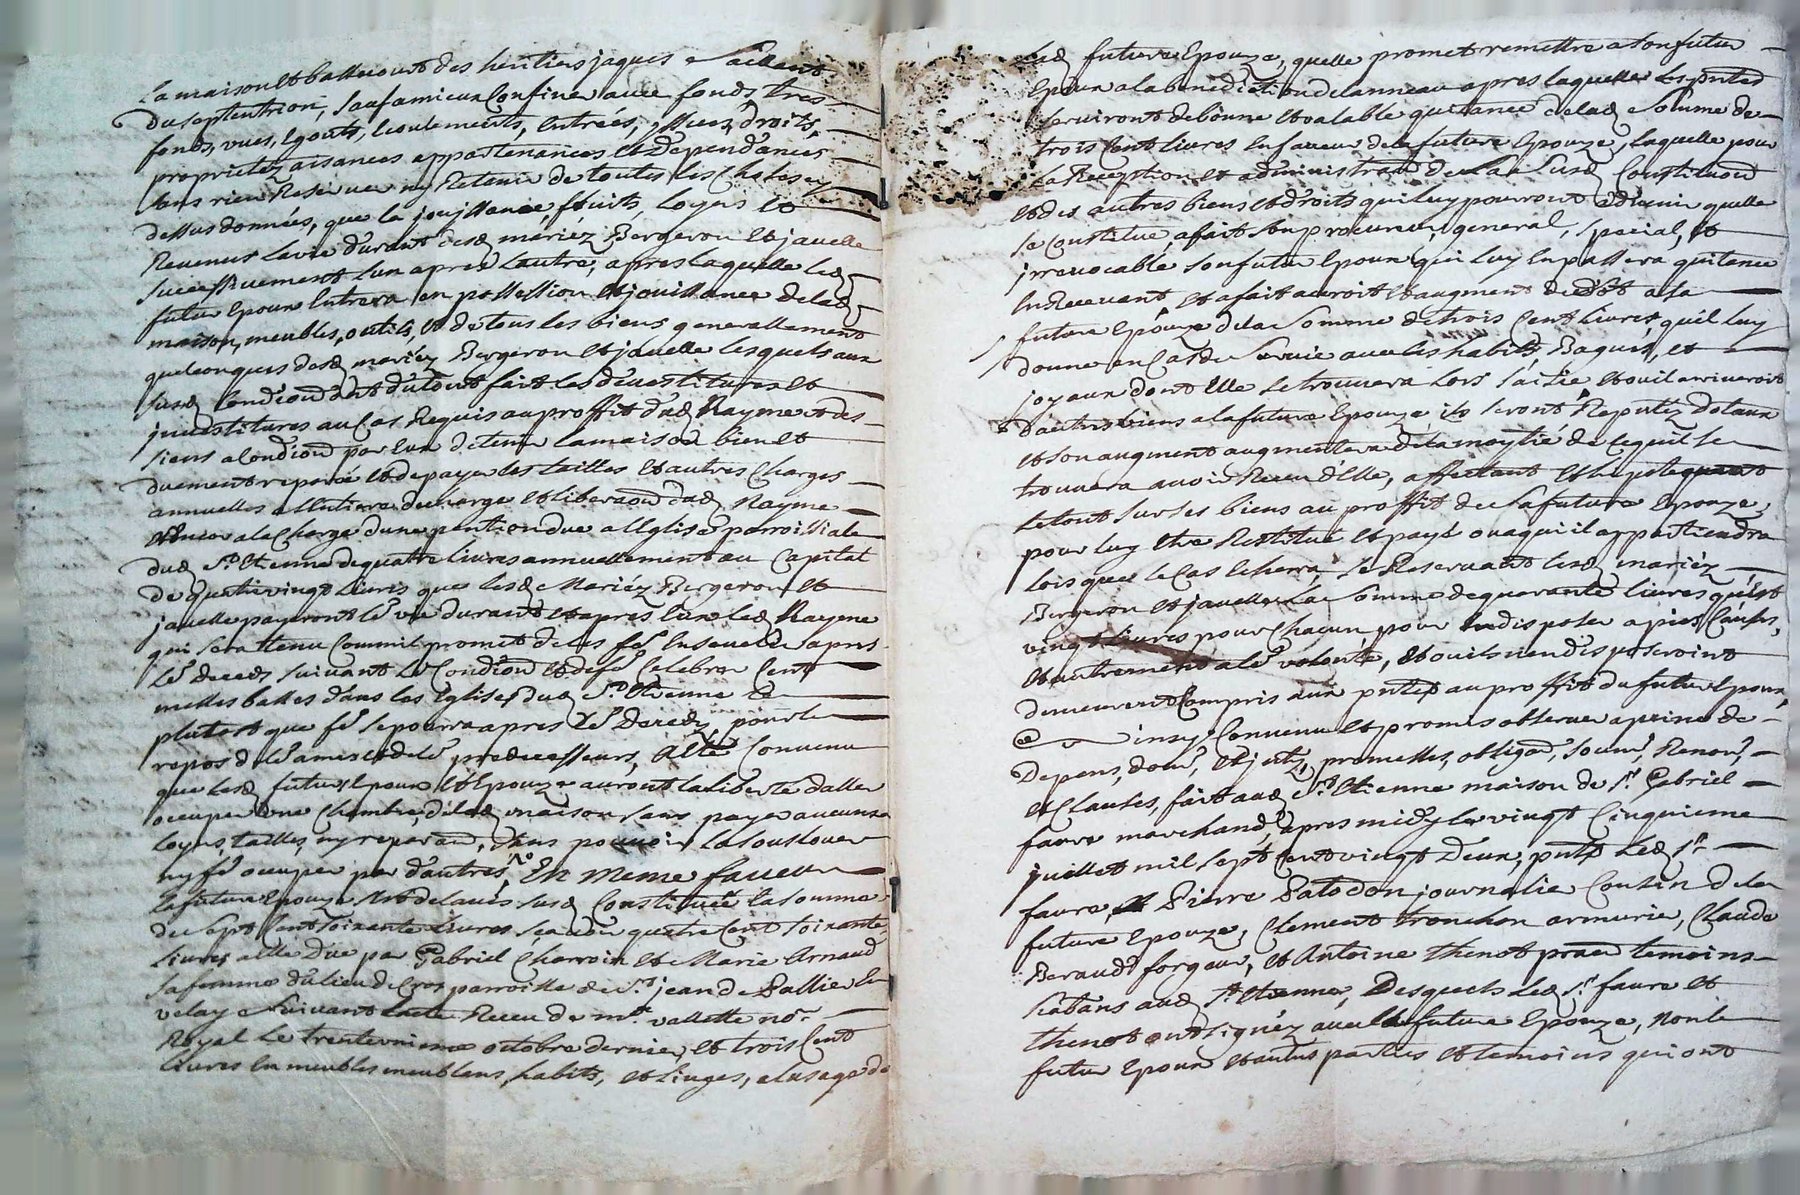 La maison et basse cour des heritiers jaques
Du Septentrion, Sauf a mieux Confiner avec fonds, tres
fonds, vues, Egouts, Ecoulements, Entrées, yssues, droits,
proprietéz aisances appartenances et Dependances
Sans rien Reserver ny Retenir de toutes les Choses cy
dessus données, que la jouissance fruits, Loyers et
Revenus la vie durant desd mariéz Bergeron et javelle
Successivement L'un apres L'autre, apres laquelle led
futur Epoux Entrera en possession et jouissance de lad
maison, meubles, outils, et de tous les biens generallement
quelconques desd mariéz Bergeron et javelle lesquels aux
susd Condiond ont du tout fait les devestitures et
jnvestitures au Cas Requis au proffit dud Rayme et des
siens a Condiond par Eux de tenir la maison bien et
duement reparée et de payer les tailles et autres Charges
annuelles a l'entiere decharge et liberaond dud Rayme
a la Charge d'une pention due a l'Eglise parroissiale
dud St Etienne de quattre livres annuellement au Capital
De quattre vingt Livres que lesd Mariéz Bergeron et
javelle payeront lr vie durant et apres Eux led Rayme
qui sera tenu Comm'il promet de les fe Ensevelir apres
Lr deceds suivant lr Condiond et de fe Celebrer Cent
messes basses dans les Eglises dud St Etienne
plutost que fe se pourra apres Lr deceds pour le
repos de lr ames et de lr predecesseurs, a Eté Convenu
que lesd futurs Epoux et Epouze auront la liberté d'aller
occuper une Chambre de lad maison sans payer aucuns
Loyers, tailles, ny reparaond, sans pouvoir la souslouer
ny fe occuper par d'autres, En meme faveur
La future Epouze Constituée la somme
de sept Cent soixante Livres, sçavoir quatre Cent soixante
livres a Elle due par Gabriel Charroin et Marie Arnaud
sa femme du lieu de Cros parroisse de St jean de Pallier En
velay Suivant l'acte Receu de me vallette nore
Royal Le trente octobre dernier, et trois Cent
livres En meubles meublans, habits, et Linges, a l'usage de
lad future Epouze, qu'elle promet remettre a son futur
Epoux a la benediction de l'anneau apres laquelle les pntes
serviront de bonne et valable quittance de lad Somme de
trois Cent livres En faveur de la future Epouze, laquelle pour
La Reception et administraond de La Susd Constituond
et des autres biens et droits qui luy pourront advenir qu'elle
se Constitue, a fait son procureur, general, special, et
jrrevocable son futur Epoux qui luy En passera quitance
En Recevant, et a fait accroit et augment de dot a sa
future Epouze de la Somme de trois Cent Livres, qu'il luy
donne en Cas de Survie avec les habits, Bagues, et
joyaux dont Elle se trouvera Lors saisie et ou il arriveroit
D'autres biens a la future Epouze ils seront Reputéz dotaux
et son augment augmentera de la moytié de ce qu'il se
trouvera avoir Receu d'Elle, affectant et hipotequant
Le tout sur ses biens au proffit de sa future Epouze,
pour luy Etre Restitué et payé ou a qui il appartiendra
lors que le Cas Echerra, se Reservant lesd mariéz
Bergeron et javelle La Somme de quarante livres qu'est
vingt livres pour Chacun pour En disposer a pies Causes,
et autrement a lr volonté, et ou ils n'en disposeroint
demeurent Compris aux pntes au proffit du futur Epoux,
insy Convenu et promis observer a peine de
Depens, dom, et jnts, promesses, obligaond, soum, Renon,
et Clauses, fait aud St Etienne maison de Sr Gabriel
faure marchand, apres midy le vingt Cinquieme
juillet mil sept Cent vingt Deux, pnts Led Sr
faure, et Pierre Patodon journalie Cousin de la
future Epouze, Clement tronchon armurie, Claude
Beraudd forgeur, et Antoine thenot praen temoins
habtans aud St Etienne, Desquels Led Sr faure et
thenot ont signéz avec la future Epouze, non le
futur Epoux et autres parties et temoins qui ont